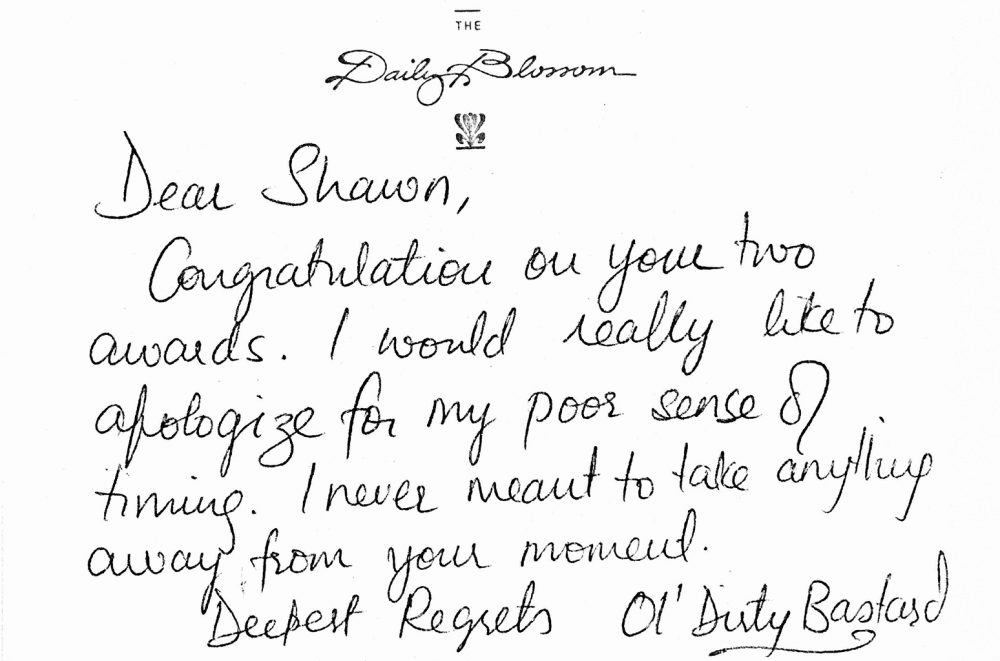 THE
Daily Blossom
Dear Shawn,
Congratulation on your two
awards. I would really like to
apologize for my poor sense of
timing. I never meant to take anything
away from your moment.
Deepest Regrets Ol' Dirty Bastard